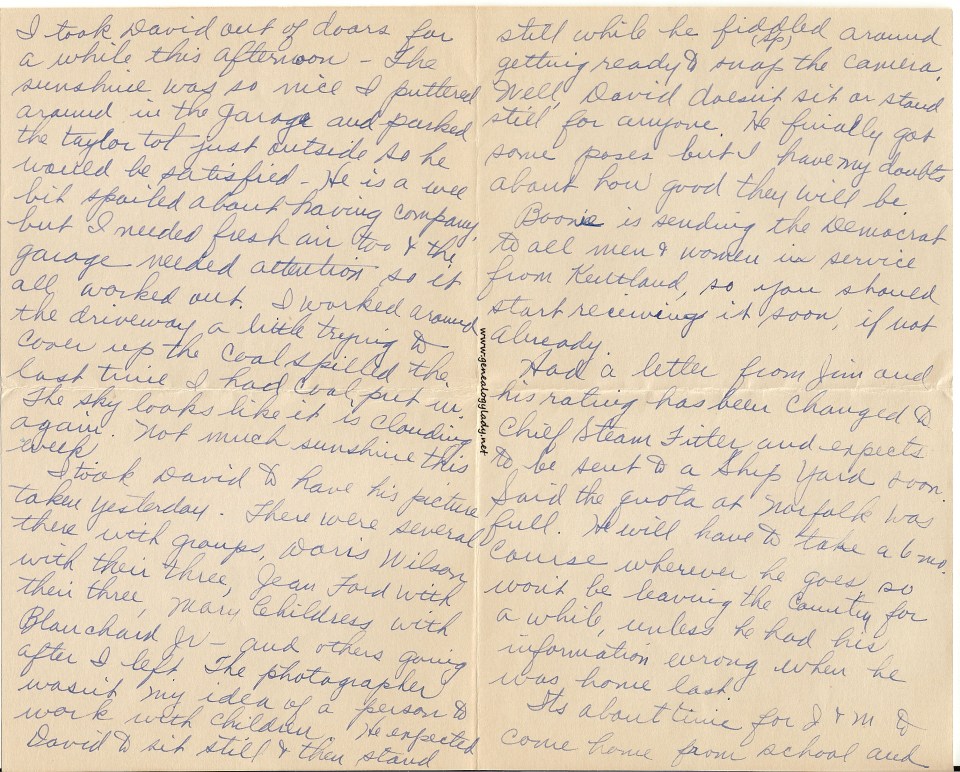 I took David out of doors for
a while this afternoon - The
sunshine was so nice I puttered
around in the garage and parked
the taylor tot just outside so he
would be satisfied - He is a wee
bit spoiled about having company,
but I needed fresh air too & the
garage needed attention so it
all worked out. I worked around
the driveway a little trying to
cover up the coal spilled the
last time I had coal put in.
The sky looks like it is clouding
again. Not much sunshine this
week
I took David to have his picture
taken yesterday. There were several
there with groups, Doris Wilson
with their three, Jean Ford with
their three, Mary Childress with
Blanchard Jr - and others going
after I left. The photographer
wasn't my idea of a person to
work with children. He expected
David to sit still & then stand
still while he fiddled around
(sp)
getting ready to snap the camera.
Well, David doesn't sit or stand
still for anyone. He finally got
some poses but I have my doubts
about how good they will be
Boone is sending the Democrat
to all men & women in service
from Kentland, so you should
start receiving it soon, if not
already.
Had a letter from Jim and
his rating has been changed to
Chief Steam Fitter, and expects
to be sent to a Ship Yard soon.
Said the quota at Norfolk was
full. He will have to take a 6 mo.
course wherever he goes, so
won't be leaving the country for
a while, unless he had his
information wrong when he
was home last.
Its about time for J & M to
come home from school and
www.genealogylady.net